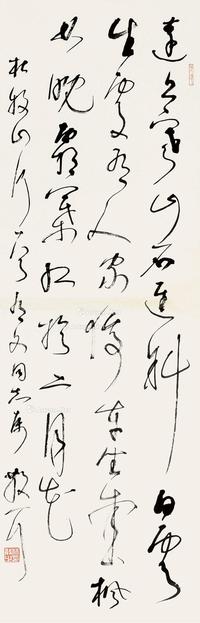 遠上寒山石逕斜白雲
生處有人家停車坐愛楓
林晚霜葉紅於二月花
杜牧山行文同志属散耳